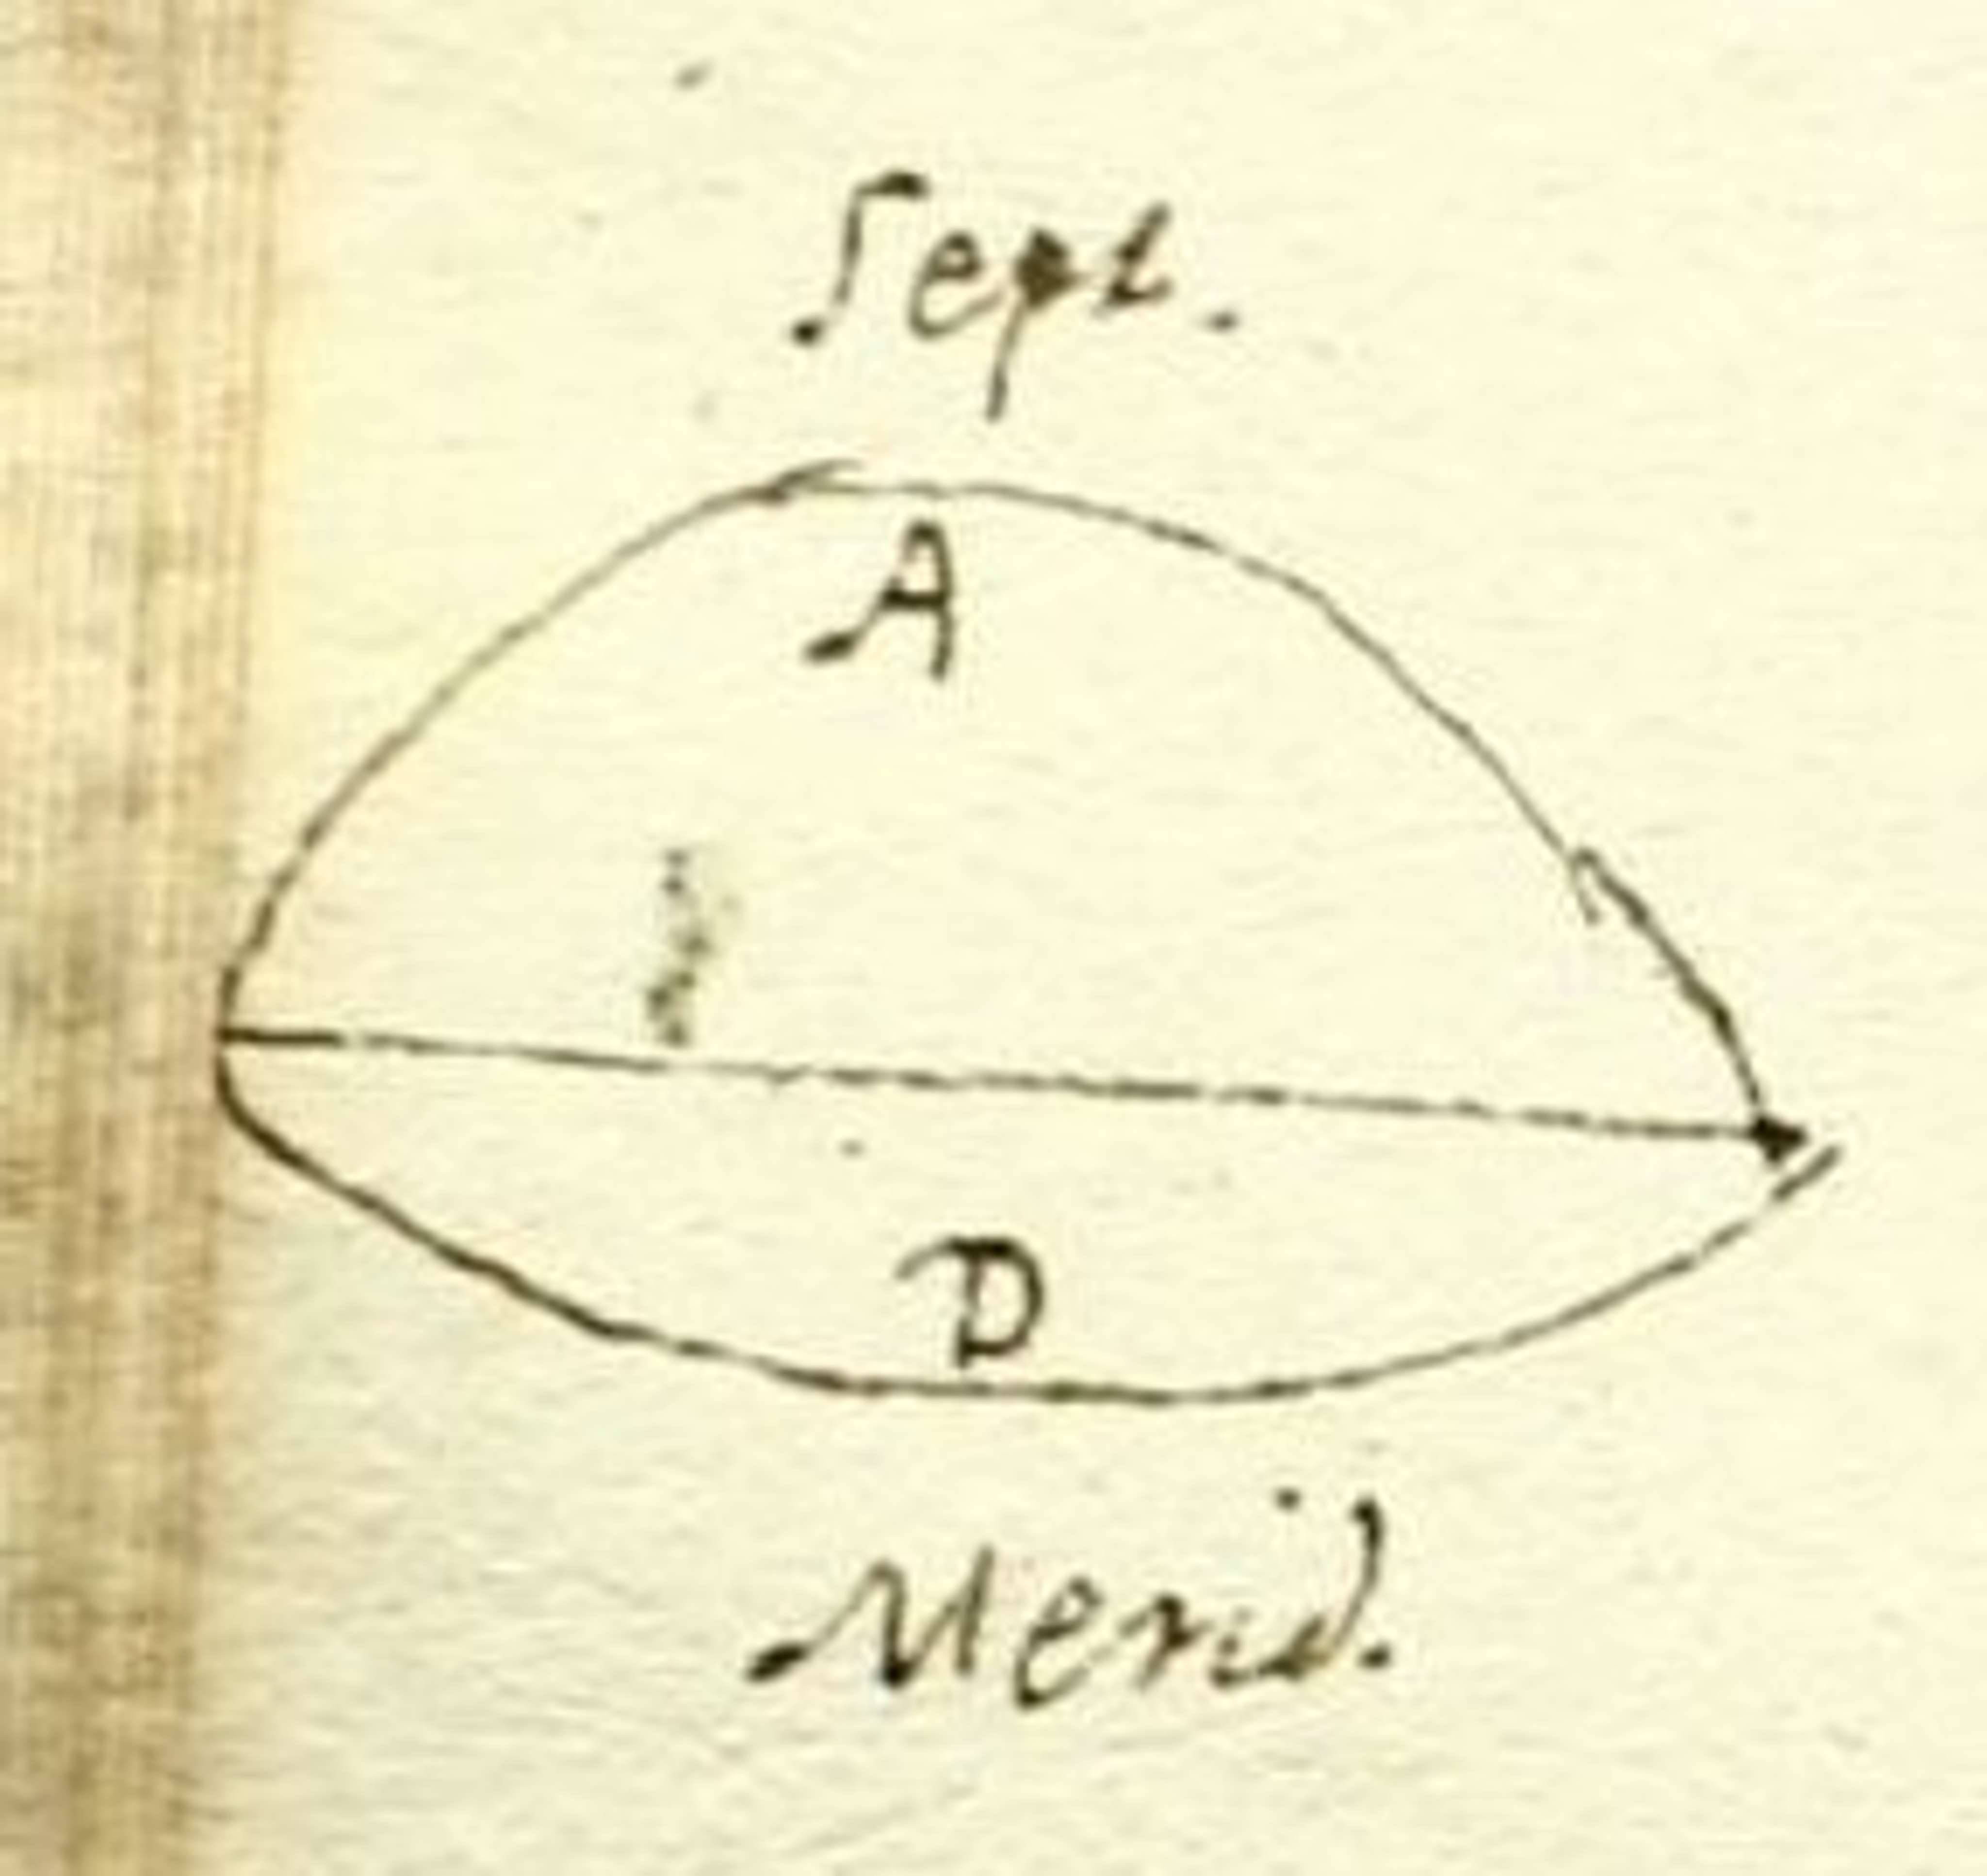 Sept.
A
D
Merid.